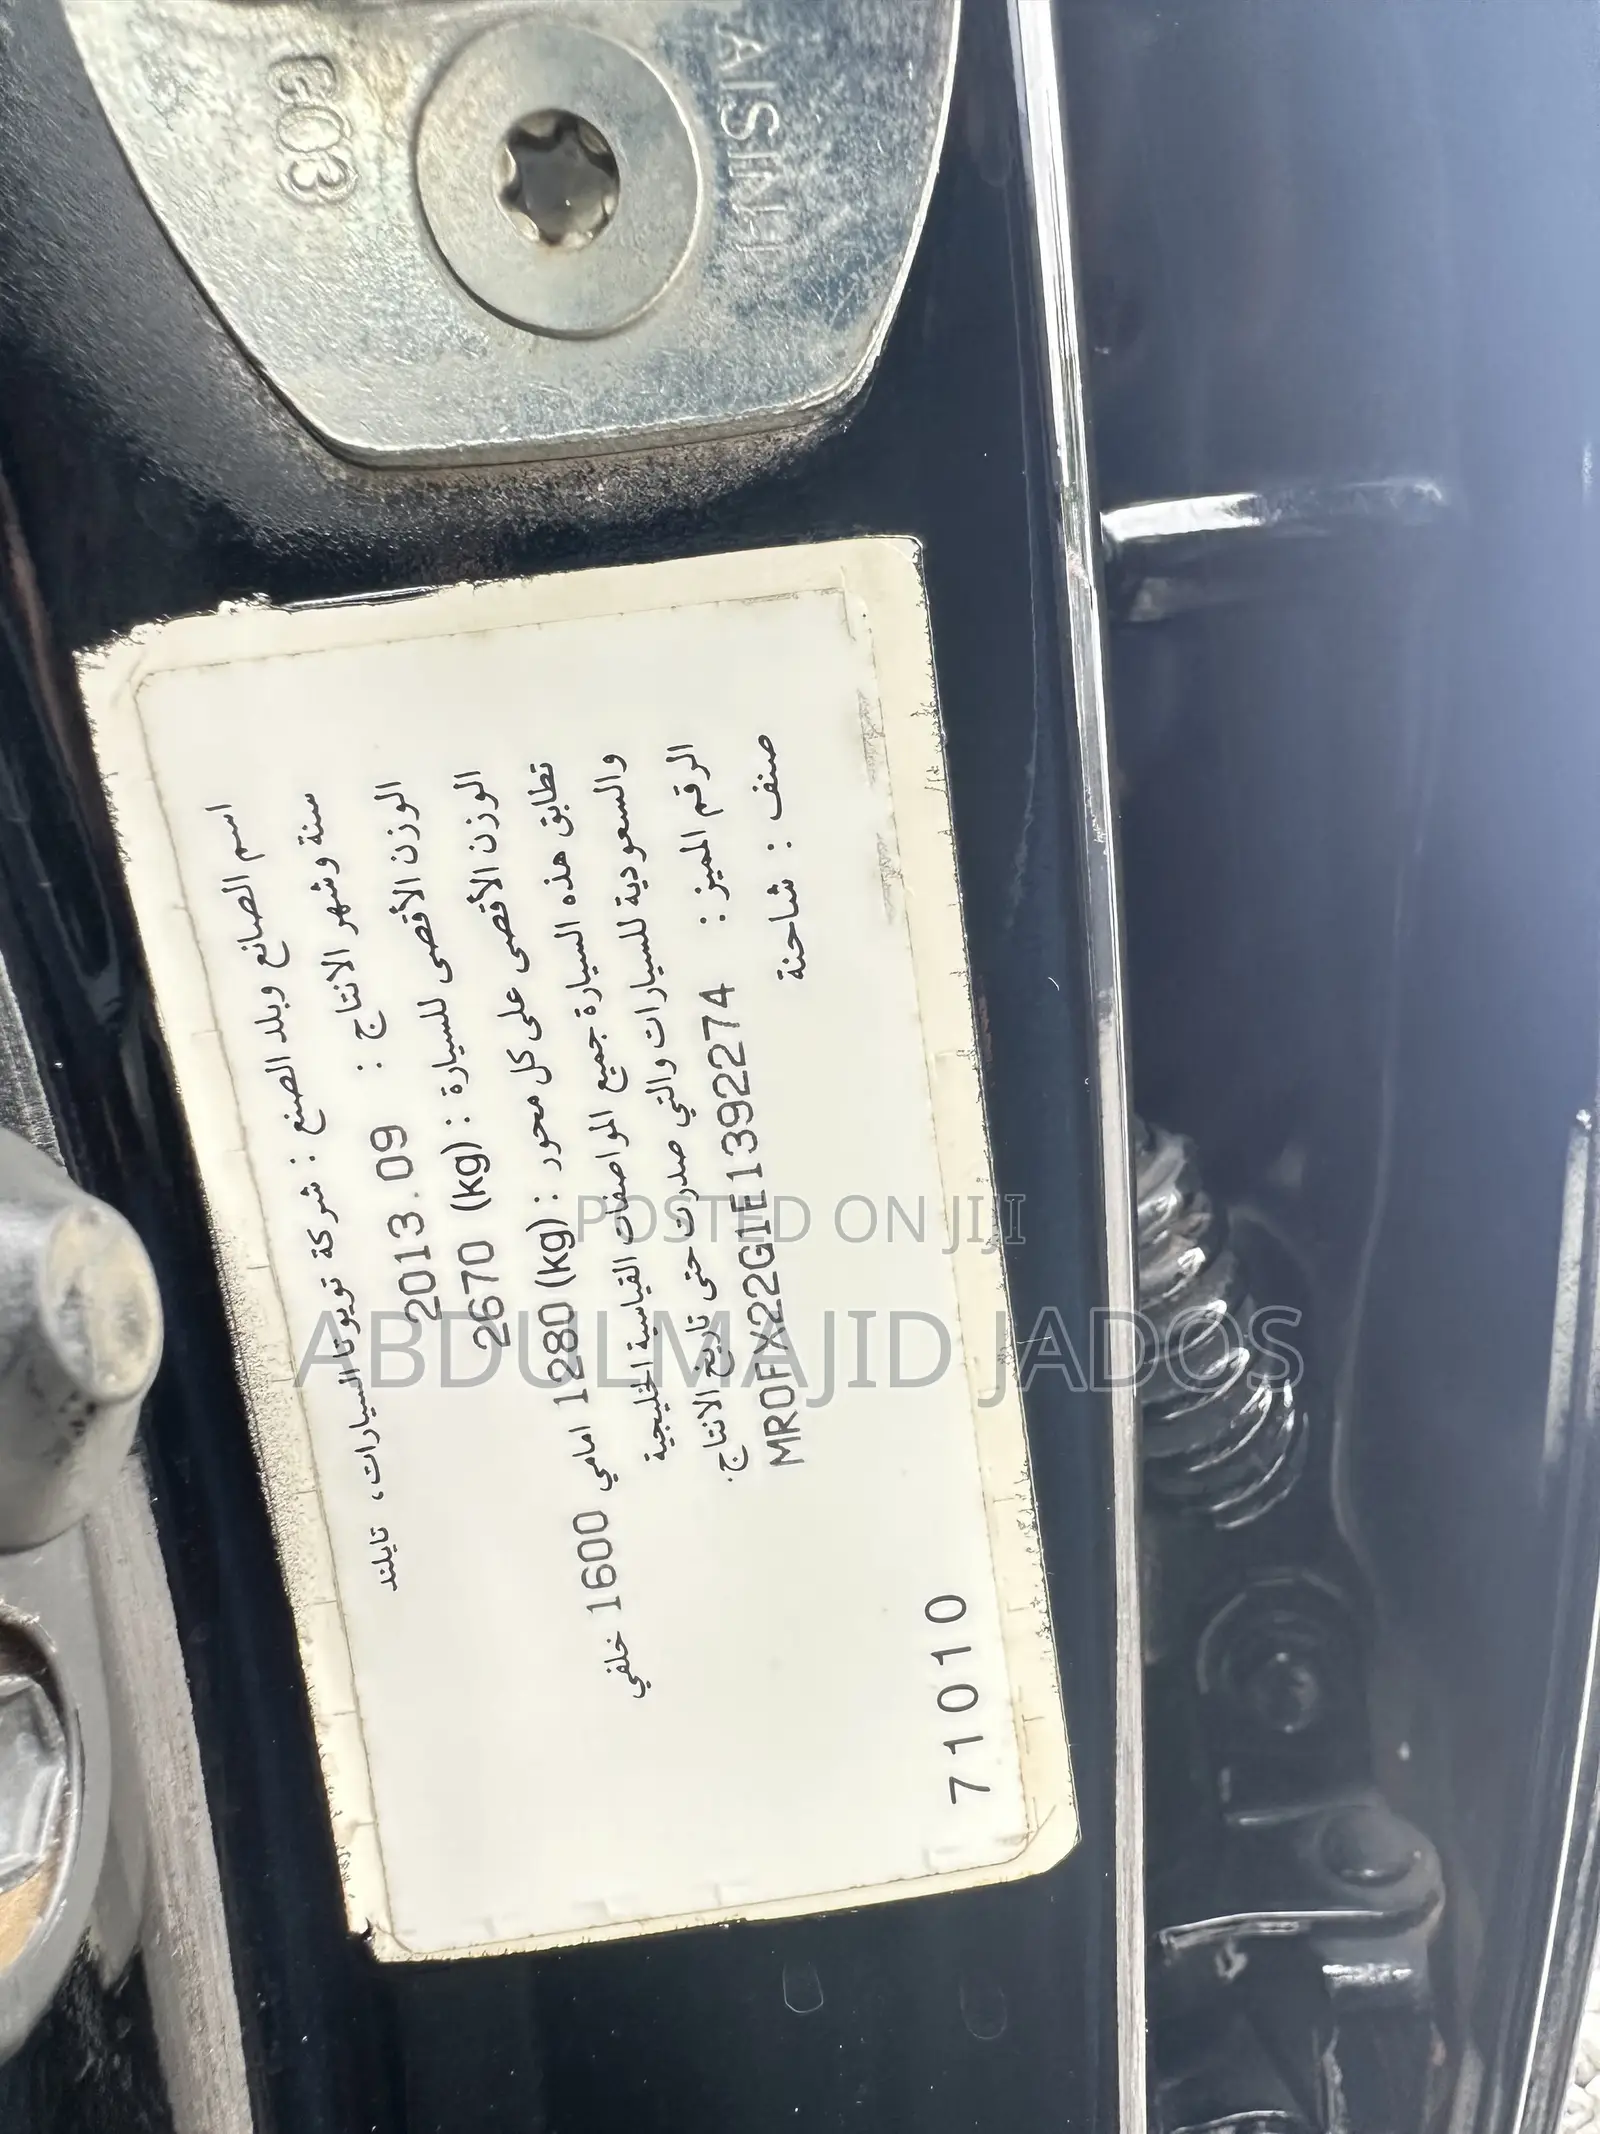 G03
AISIN
اسم الصانع وبلد الصنع : شركة تويوتا السيارات، تايلند
سنة وشهر الانتاج : 2013.09
الوزن الأقصى للسيارة : (kg) 2670
الوزن الأقصى على كل محور : (kg) 1280 امامي 1600 خلفي
تطابق هذه السيارة جميع المواصفات القياسية الخليجية
والسعودية للسيارات والتي صدرت حتى تاريخ الانتاج.
الرقم المميز : MR0FX22G1E1392274
صنف : شاحنة
71010
POSTED ON JIJI
ABDULMAJID JADOS